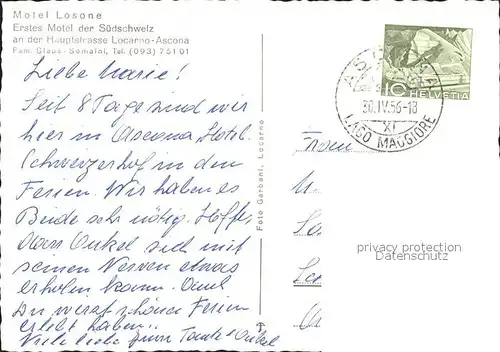 Motel Losone
Erstes Motel der Südschweiz
an der Hauptstrasse Locarno-Ascona
Fam. Glaus-Somaini, Tel. (093) 7 51 01
Liebe Marie!
Seit 8 Tage sind wir
hier in Ascona Hotel
Schweizerhof in den
Ferien. Wir haben es
Beide sehr nötig. Hoffe,
dass Onkel sich mit
seinen Nerven etwas
erholen kann. Auch
Du wirst schöne Ferien
erlebt haben.
Viele liebe Tante & Onkel
Foto Garbani, Locarno
ASCONA
30.IV.56-18
XI
LAGO MAGGIORE
10 HELVETIA
privacy protection
Datenschutz